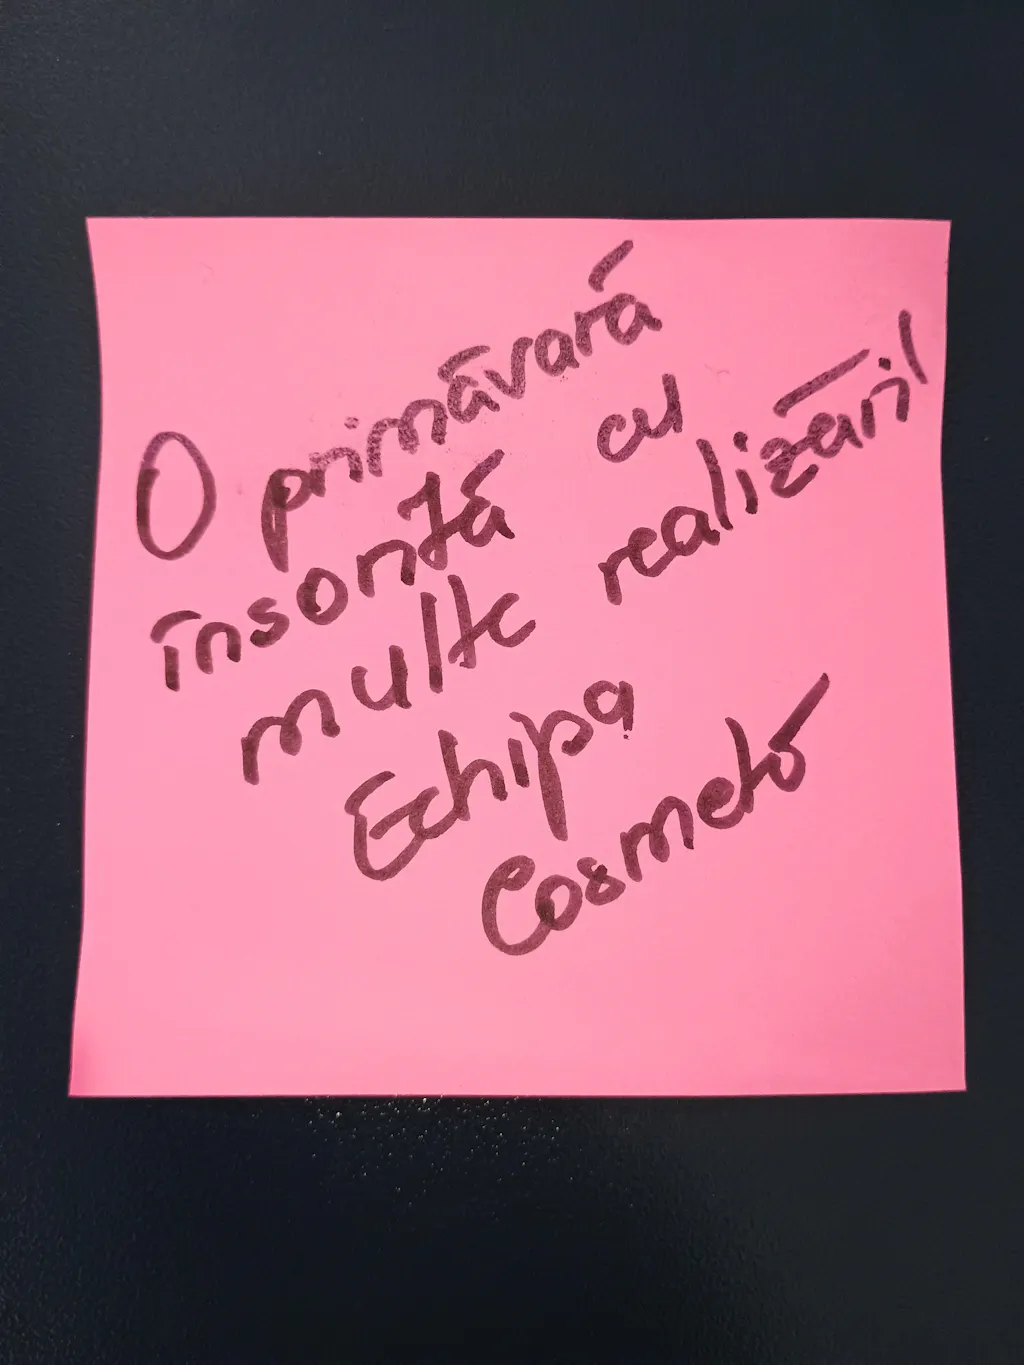 O primăvară
însorită cu
multe realizări!
Echipa
Cosmető